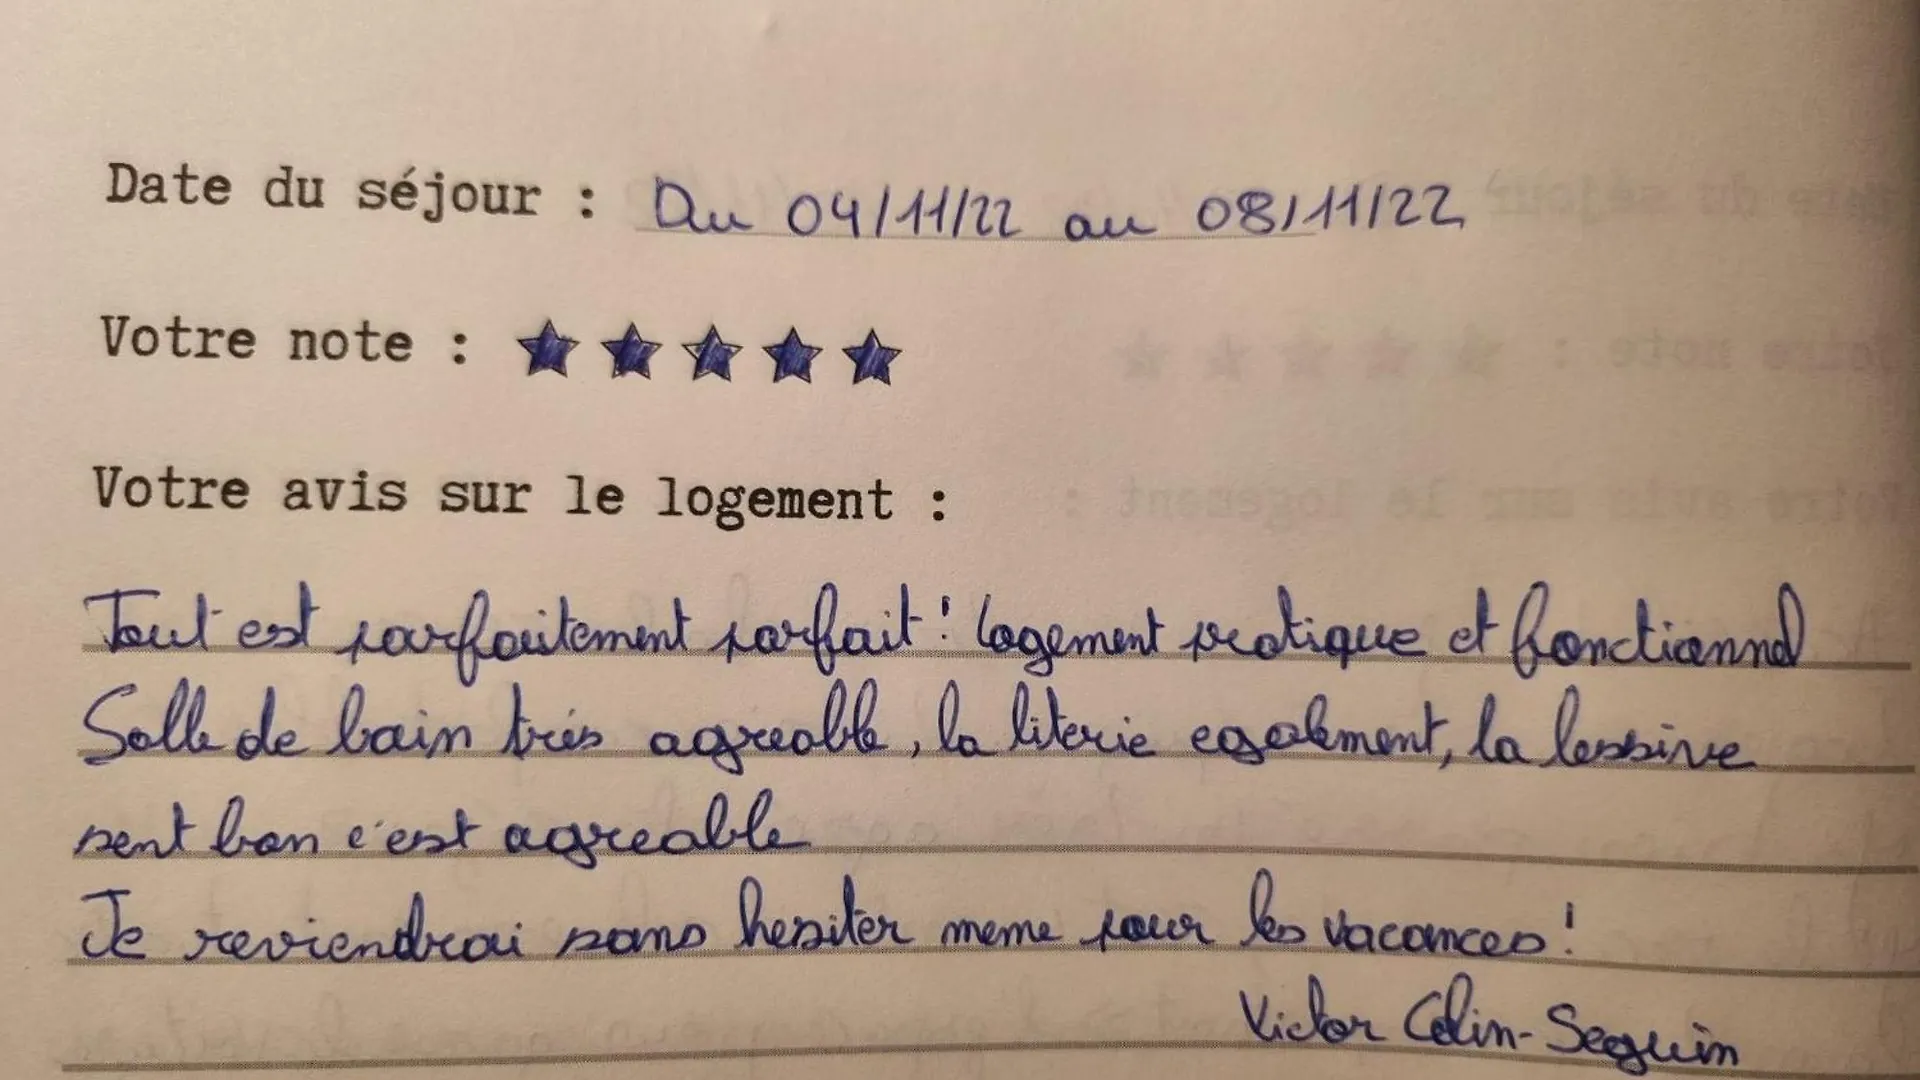 Date du séjour : Du 04/11/22 au 08/11/22
Votre note : ★★★★★
Votre avis sur le logement :
Tout est parfaitement parfait ! logement pratique et fonctionnel
Salle de bain très agreable, la literie egalement, la lessive
sent bon c'est agreable
Je reviendrai sans hesiter meme pour les vacances !
Victor Colin-Seguin